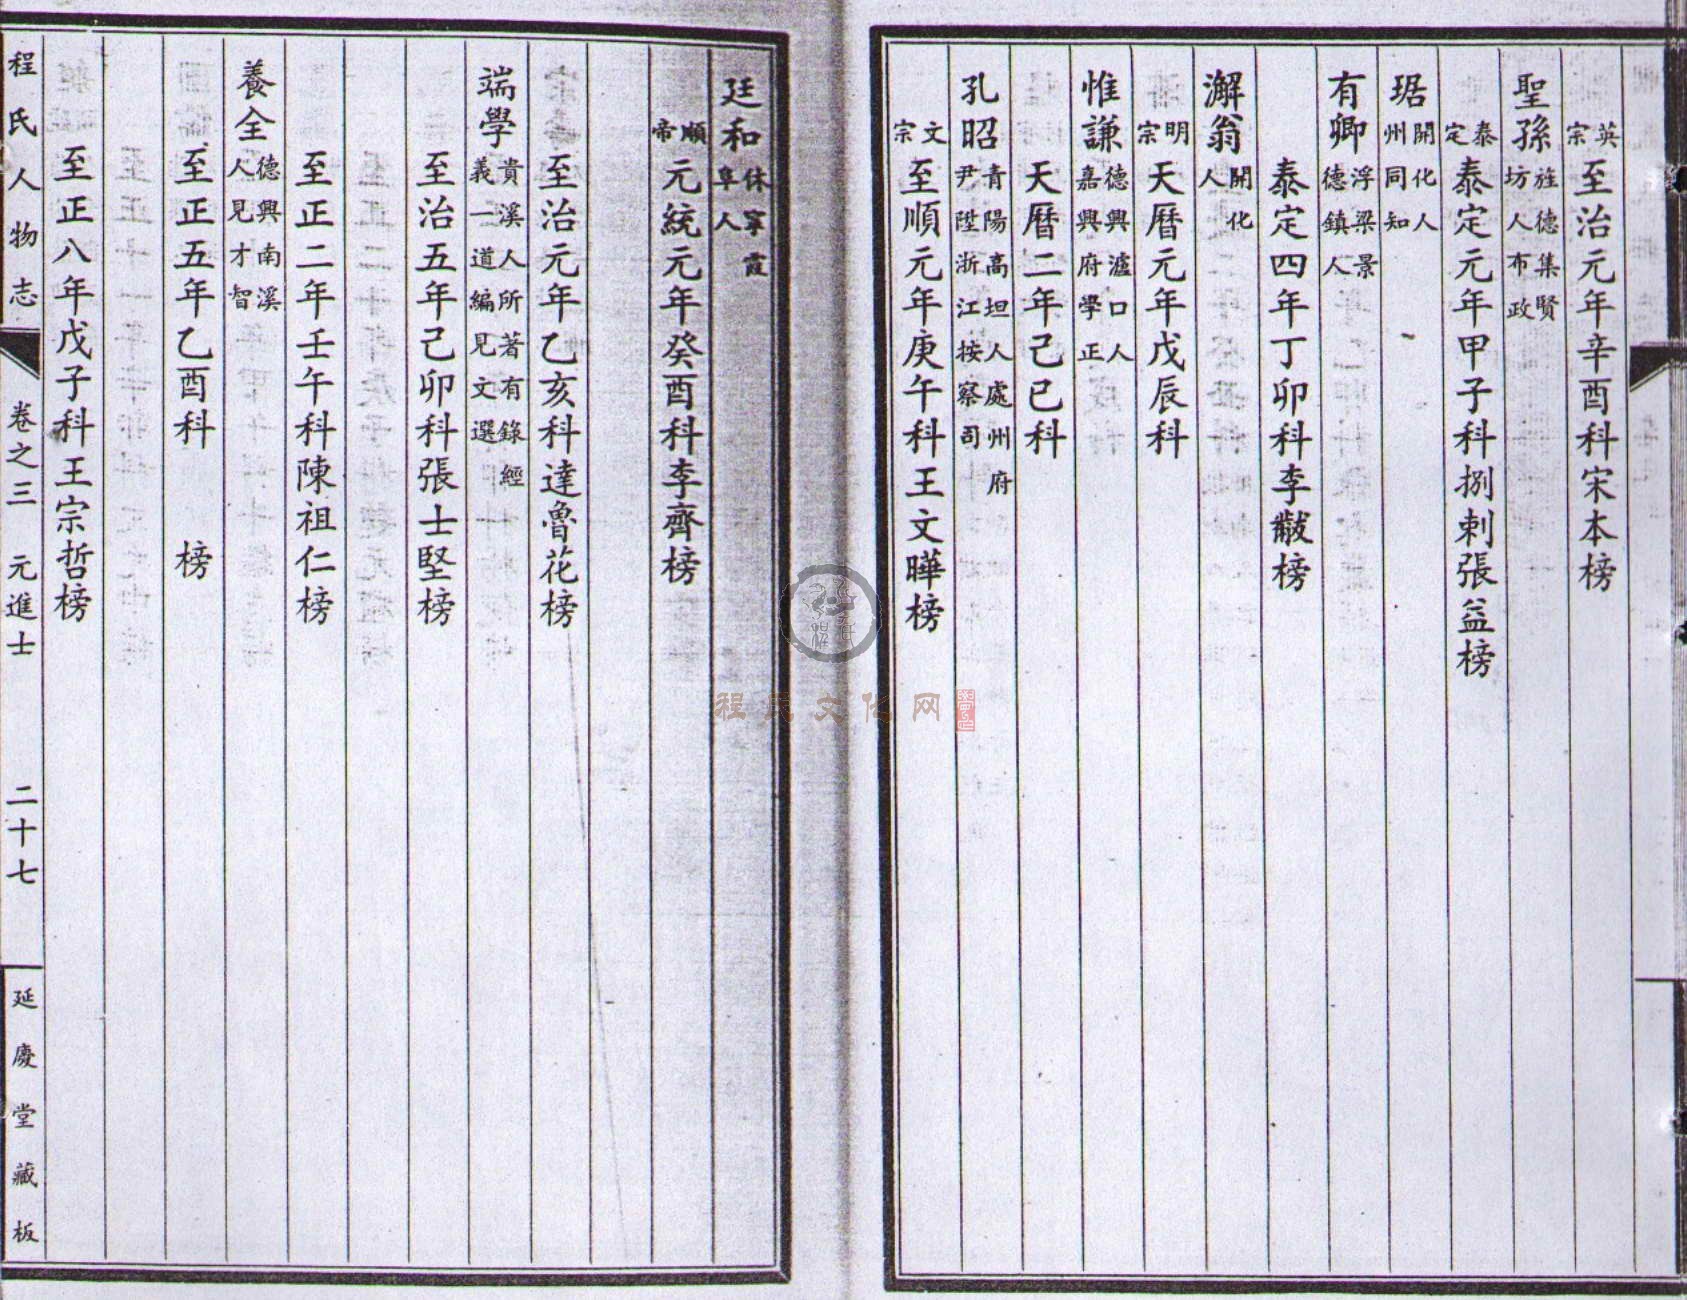 英宗至治元年辛酉科宋本榜
聖孫旌德集賢坊人布政
泰定泰定元年甲子科捌剌張益榜
琚開化人州同知
有卿浮梁景德鎮人
泰定四年丁卯科李黻榜
澥翁開化人
明宗天曆元年戊辰科
惟謙德興瀘口人嘉興府學正
天曆二年己巳科
孔昭青陽高坦人處州府尹陞浙江按察司
文宗至順元年庚午科王文曄榜
廷和休寧霞阜人
順帝元統元年癸酉科李齊榜
至治元年乙亥科達魯花榜
端學貴溪人所著有錄經義一道編見文選
至治五年己卯科張士堅榜
至正二年壬午科陳祖仁榜
養全德興南溪人見才智
至正五年乙酉科 榜
至正八年戊子科王宗哲榜
程氏人物志 卷之三 元進士 二十七 延慶堂藏板
程氏文化网